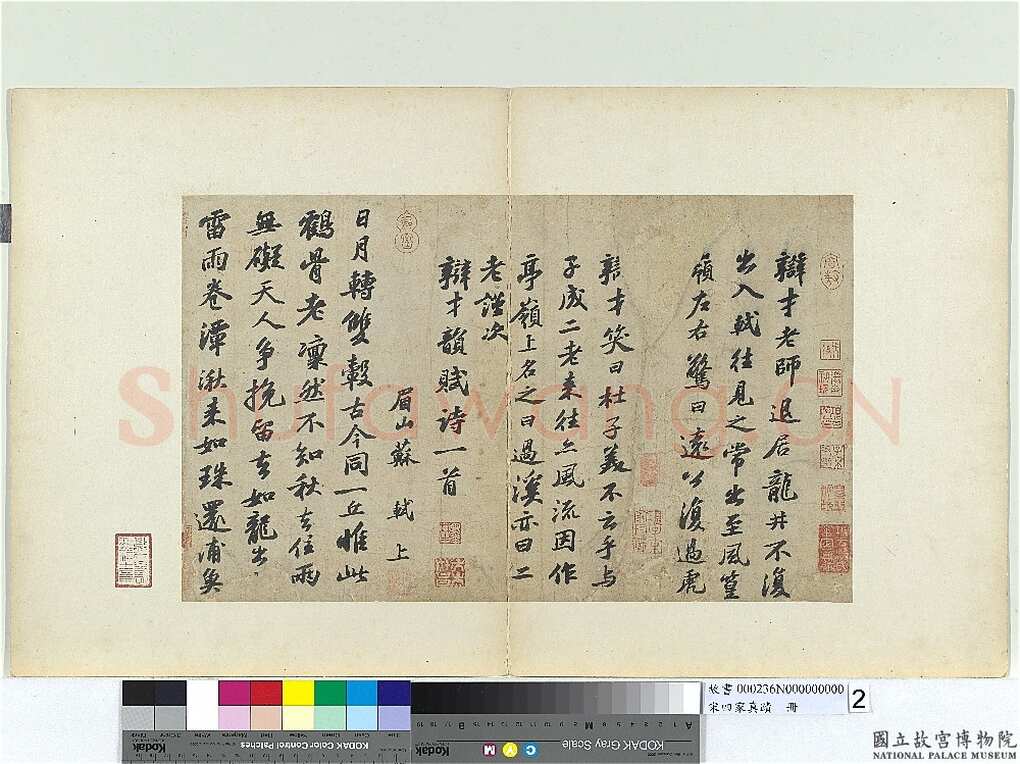 辯才老師退居龍井不復
出入軾往見之常出至風篁
嶺左右驚曰遠公復過虎
辯才笑曰杜子美不云乎與
子成二老来往亦風流因作
亭嶺上名之曰過溪亦曰二
老謹次
辯才韻賦詩一首
眉山蘇 軾 上
日月轉雙轂古今同一丘惟此
鶴骨老凜然不知秋去住兩
無礙天人争挽留去如龍出
雷雨卷潭湫来如珠還浦魚
Shufawang.CN
KODAK Color Control Patches
Kodak
KODAK Gray Scale
Kodak
C M Y
故書 000236N000000000
宋四家真蹟 冊
2
國立故宮博物院
NATIONAL PALACE MUSEUM